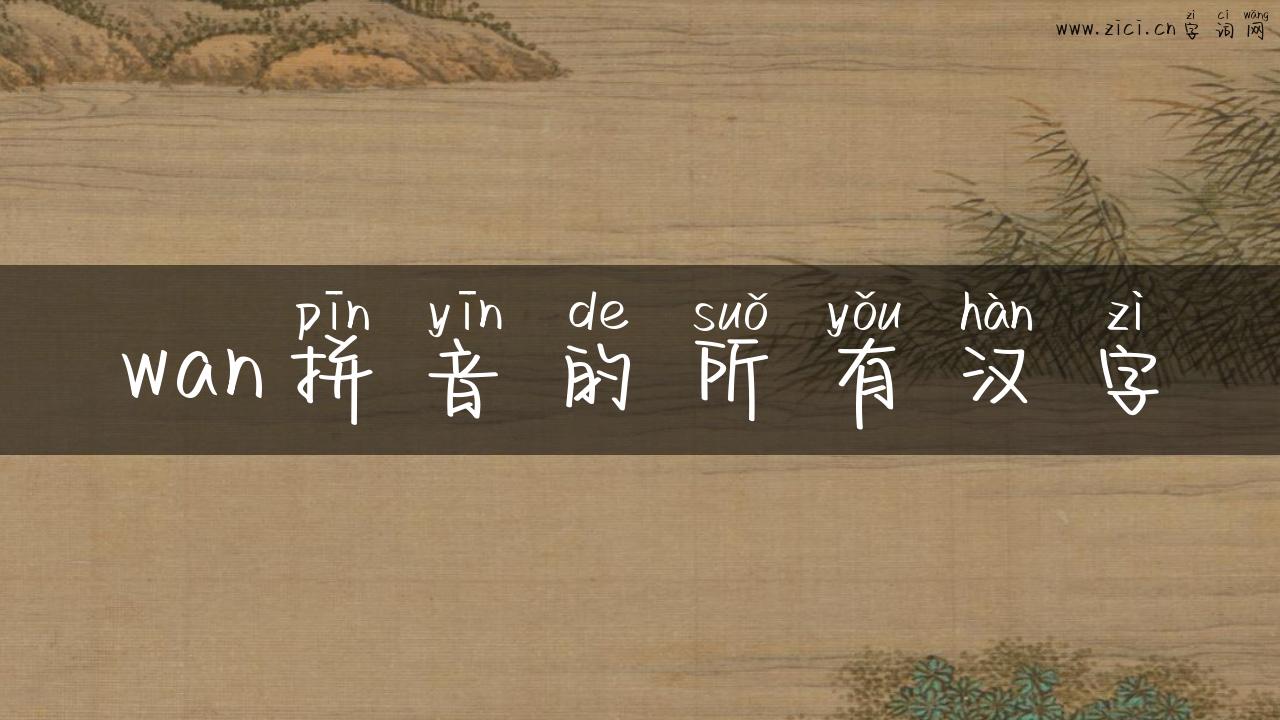 zì cí wǎng
www.zici.cn字词网
pīn yīn de suǒ yǒu hàn zì
wan拼音的所有汉字